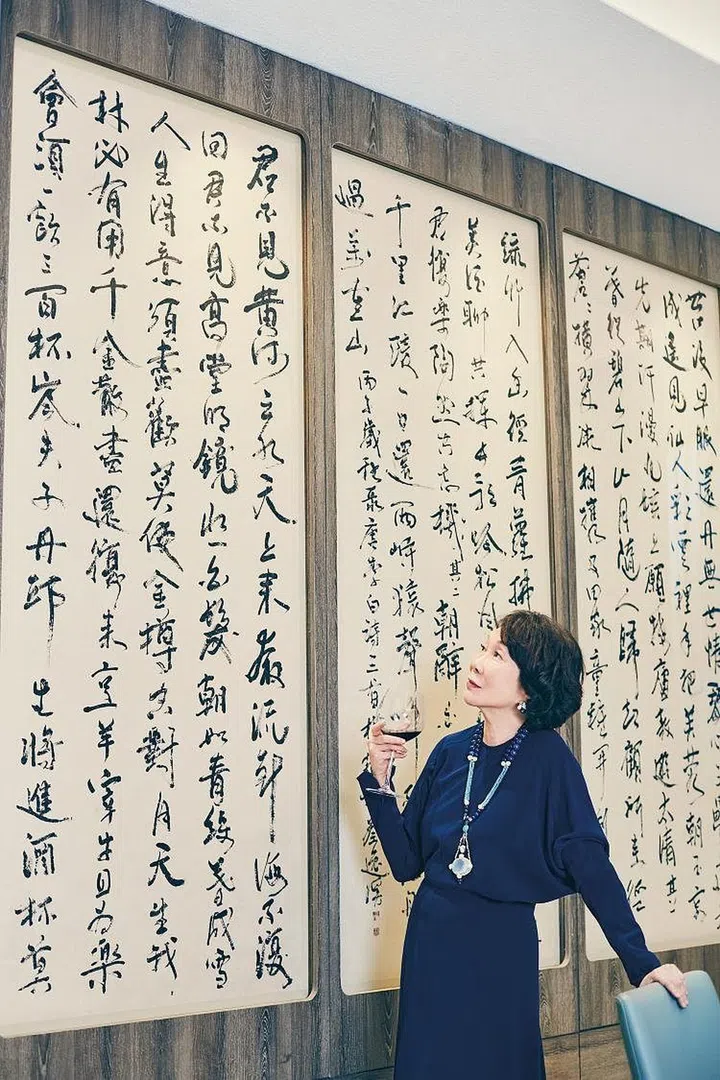 苔沒早服還丹無世情
成遙見仙人彩雲裡手把芙蓉朝玉京
先期汗漫九垓上願接盧敖遊太清其
暮從碧山下山月隨人歸卻顧所來徑
蒼蒼橫翠微相攜及田家童稚開
綠竹入幽徑青蘿拂
美酒聊共揮長歌吟松風
君復樂陶然共忘機其三朝辭白
千里江陵一日還兩岸猿聲
過萬重山
丙子歲秋錄唐李白詩三首
君不見黃河之水天上來奔流到海不復
回君不見高堂明鏡悲白髮朝如青絲暮成雪
人生得意須盡歡莫使金樽空對月天生我
材必有用千金散盡還復來烹羊宰牛且為樂
會須一飲三百杯岑夫子丹邱生將進酒杯莫